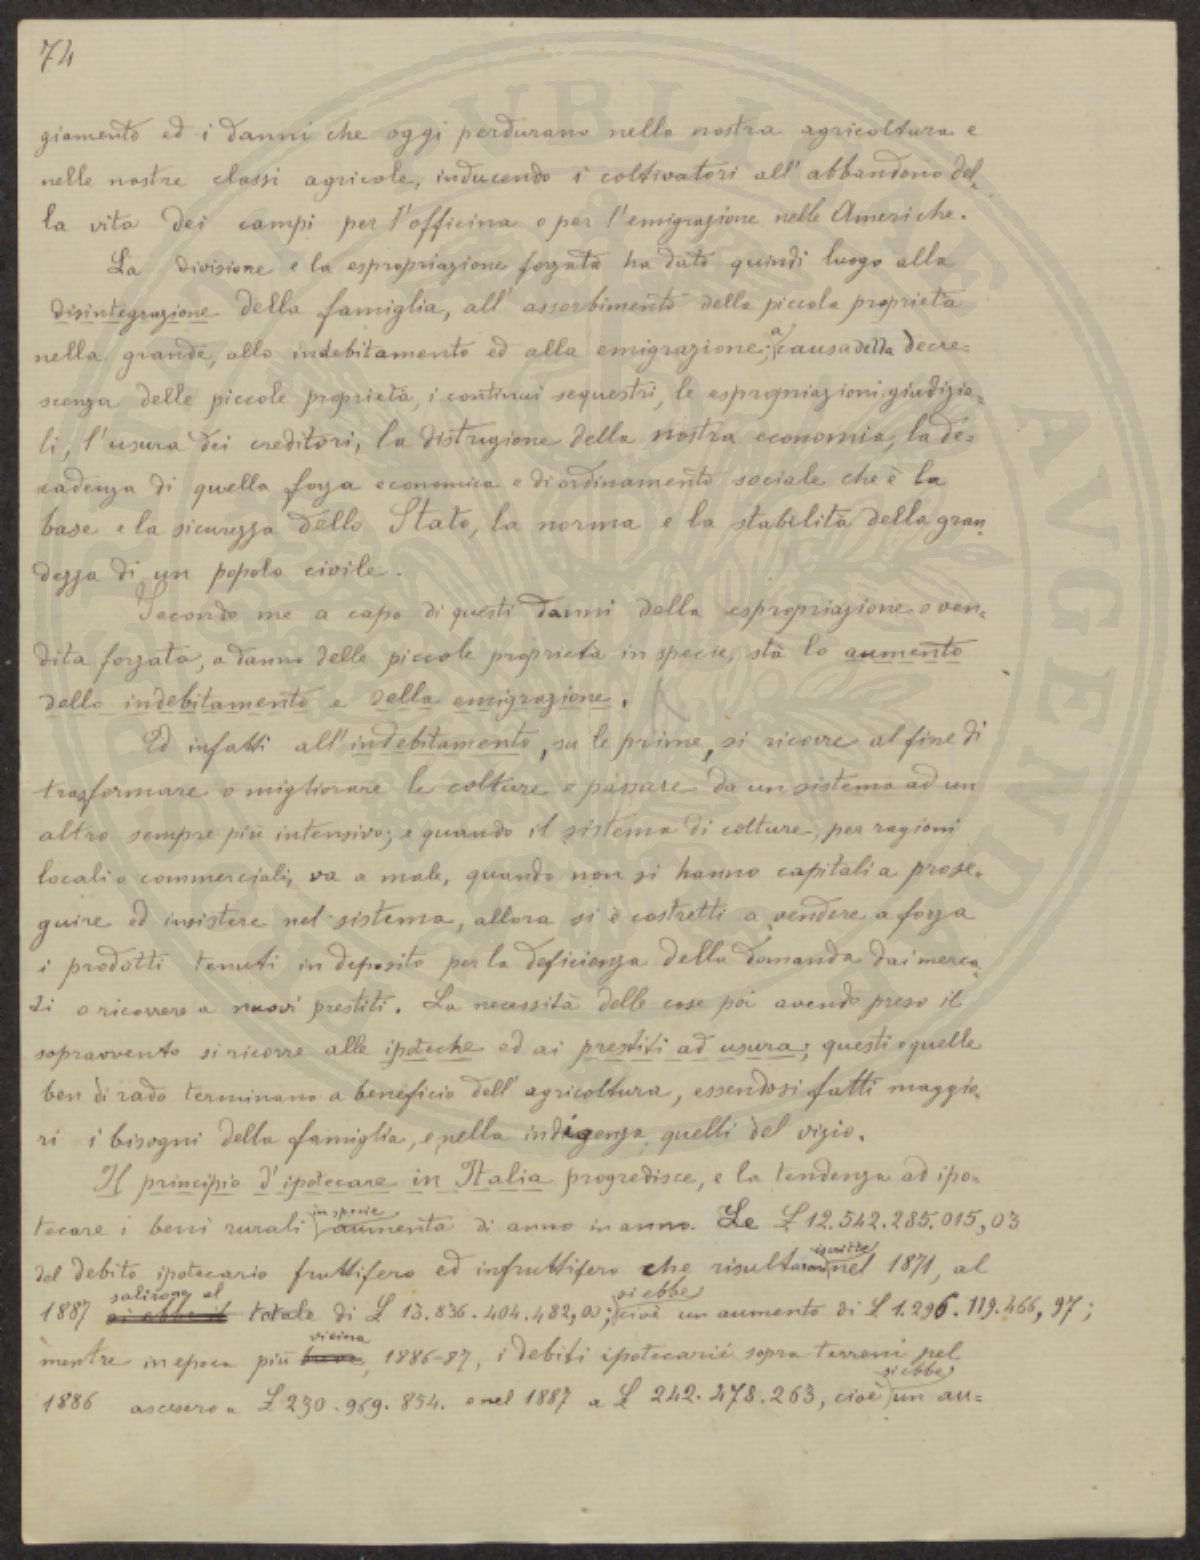 74
giamento ed i danni che oggi perdurano nella nostra agricoltura e
nelle nostre classi agricole, inducendo i coltivatori all'abbandono del-
la vita dei campi per l'officina o per l'emigrazione nelle Americhe.
La divisione e la espropriazione forzata ha dato quindi luogo alla
disintegrazione della famiglia, all'assorbimento della piccola proprietà
nella grande, allo indebitamento ed alla emigrazione; a causa della decre=
scenza delle piccole proprietà, i continui sequestri, le espropriazioni giudizia=
li, l'usura dei creditori, la distruzione della nostra economia, la de=
cadenza di quella forza economica e di ordinamento sociale che è la
base e la sicurezza dello Stato, la norma e la stabilità della gran
dezza di un popolo civile.
Secondo me a capo di questi danni della espropriazione o ven=
dita forzata, a danno delle piccole proprietà in specie, stà lo aumento
dello indebitamento e della emigrazione.
Ed infatti all'indebitamento, su le prime, si ricorre al fine di
trasformare o migliorare le colture e passare da un sistema ad un
altro sempre più intensivo; e quando il sistema di colture, per ragioni
locali o commerciali, va a male, quando non si hanno capitali a prose=
guire ed insistere nel sistema, allora si è costretti a vendere a forza
i prodotti tenuti in deposito per la deficienza della domanda dai merca
ti o ricorrere a nuovi prestiti. La necessità delle cose poi avendo preso il
sopravvento si ricorre alle ipoteche ed ai prestiti ad usura; questi e quelle
ben di rado terminano a beneficio dell'agricoltura, essendosi fatti maggio=
ri i bisogni della famiglia, e nella indigenza quelli del vizio.
Il principio d'ipotecare in Italia progredisce, e la tendenza ad ipo=
tecare i beni rurali in specie aumenta di anno in anno. Le £ 12.542.285.015,03
del debito ipotecario fruttifero ed infruttifero che risultarono iscritte nel 1871, al
1887 si ebbe il salirono al totale di £ 13.836.404.482,00; cioè si ebbe un aumento di £ 1.296.119.466,97;
mentre in epoca più vicina, 1886-87, i debiti ipotecarii sopra terreni nel
1886 ascesero a £ 230.969.854. e nel 1887 a £ 242.478.263, cioè si ebbe un au=